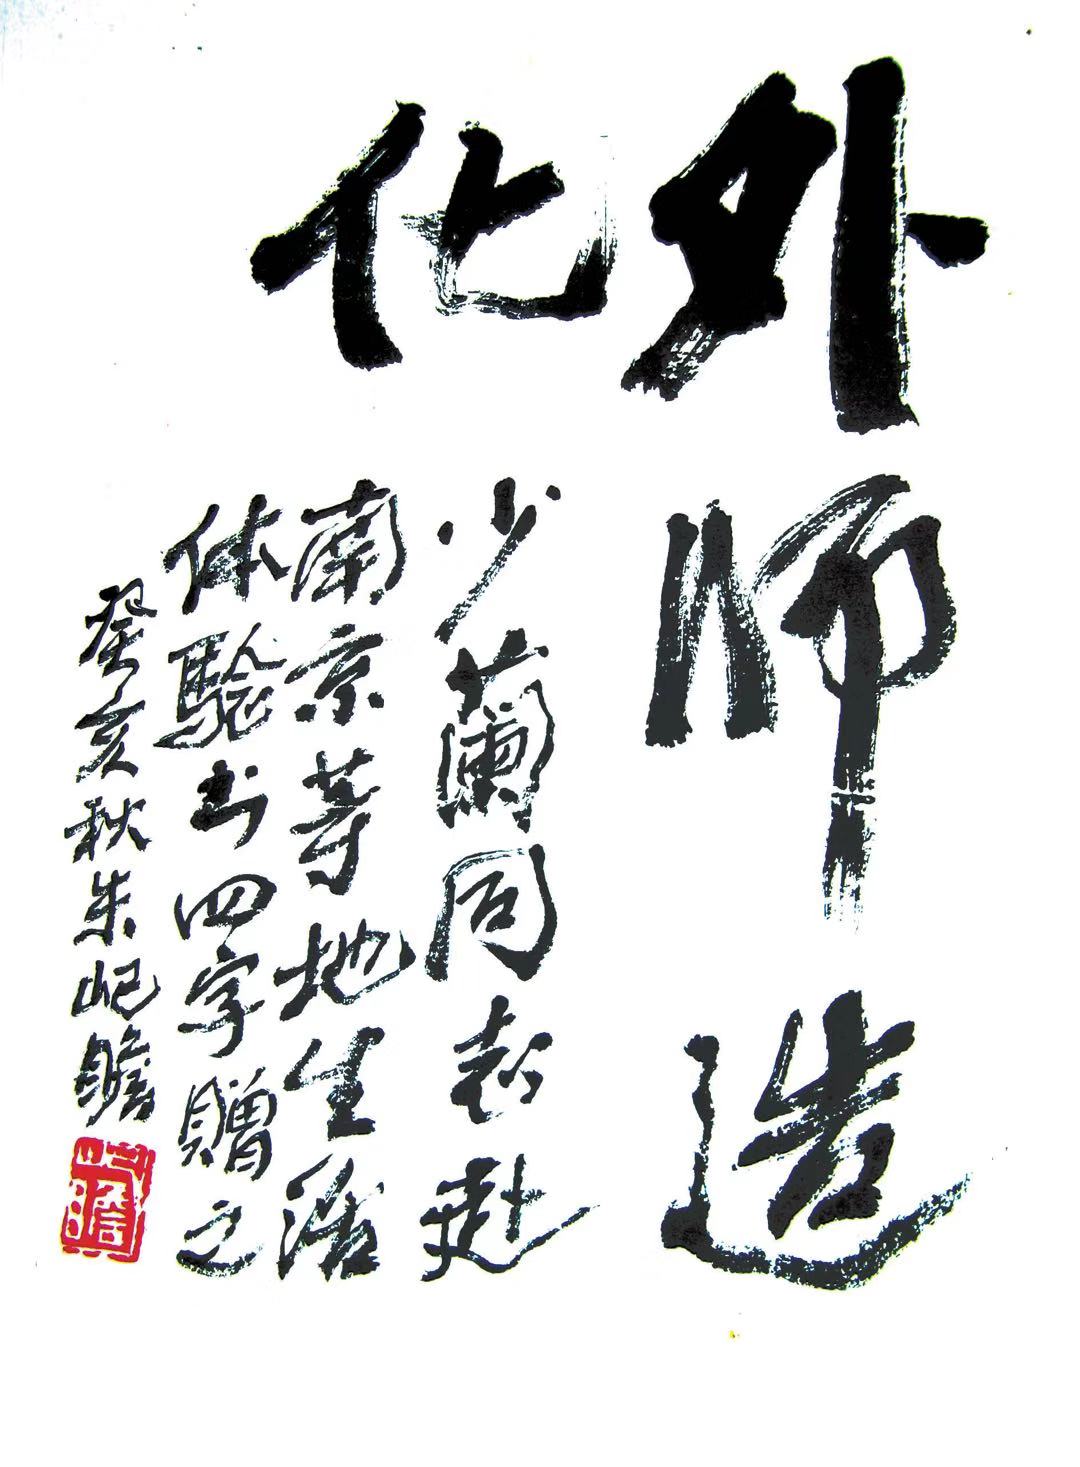 外师造
化
少蘭同志赴
南京等地生活
体驗书四字贈之
癸亥秋朱屺瞻